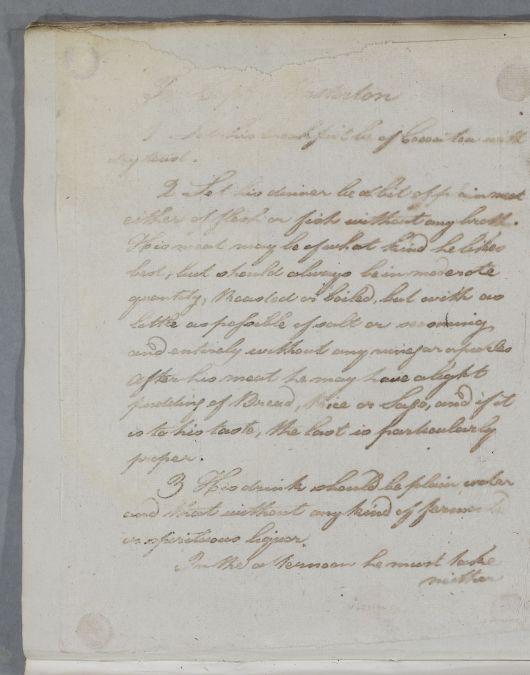 For Capt Masterton
1 Let his breakfast be of Cocoa tea with
dry toast.
2 Let his dinner be a bit of plain meat
either of flesh or fish without any broth.
This meat may be of what kind he likes
best, but should always be in moderate
quantity, Roasted or boiled, but with as
little as possible of salt or seasoning
and entirely without any vinegar or pickles
After his meat he may have a light
pudding of Bread, Rice or Sago, and if it
is to his taste, the last is particularly
proper.
3 His drink should be plain water
and that without any kind of ferment
or spirituous liquor.
In the afternoon he must take
neither